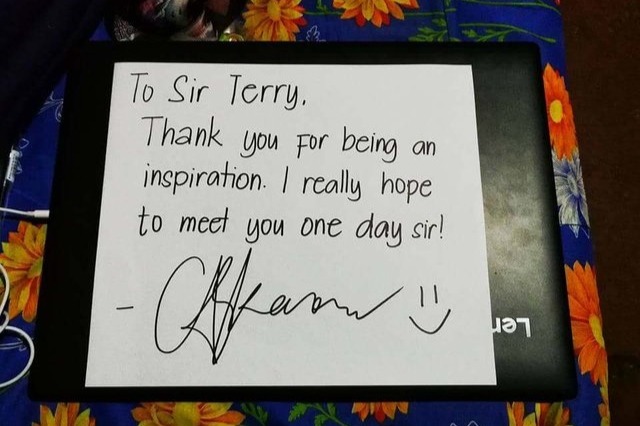 To Sir Terry.
Thank you for being an
inspiration. I really hope
to meet you one day sir!
Len